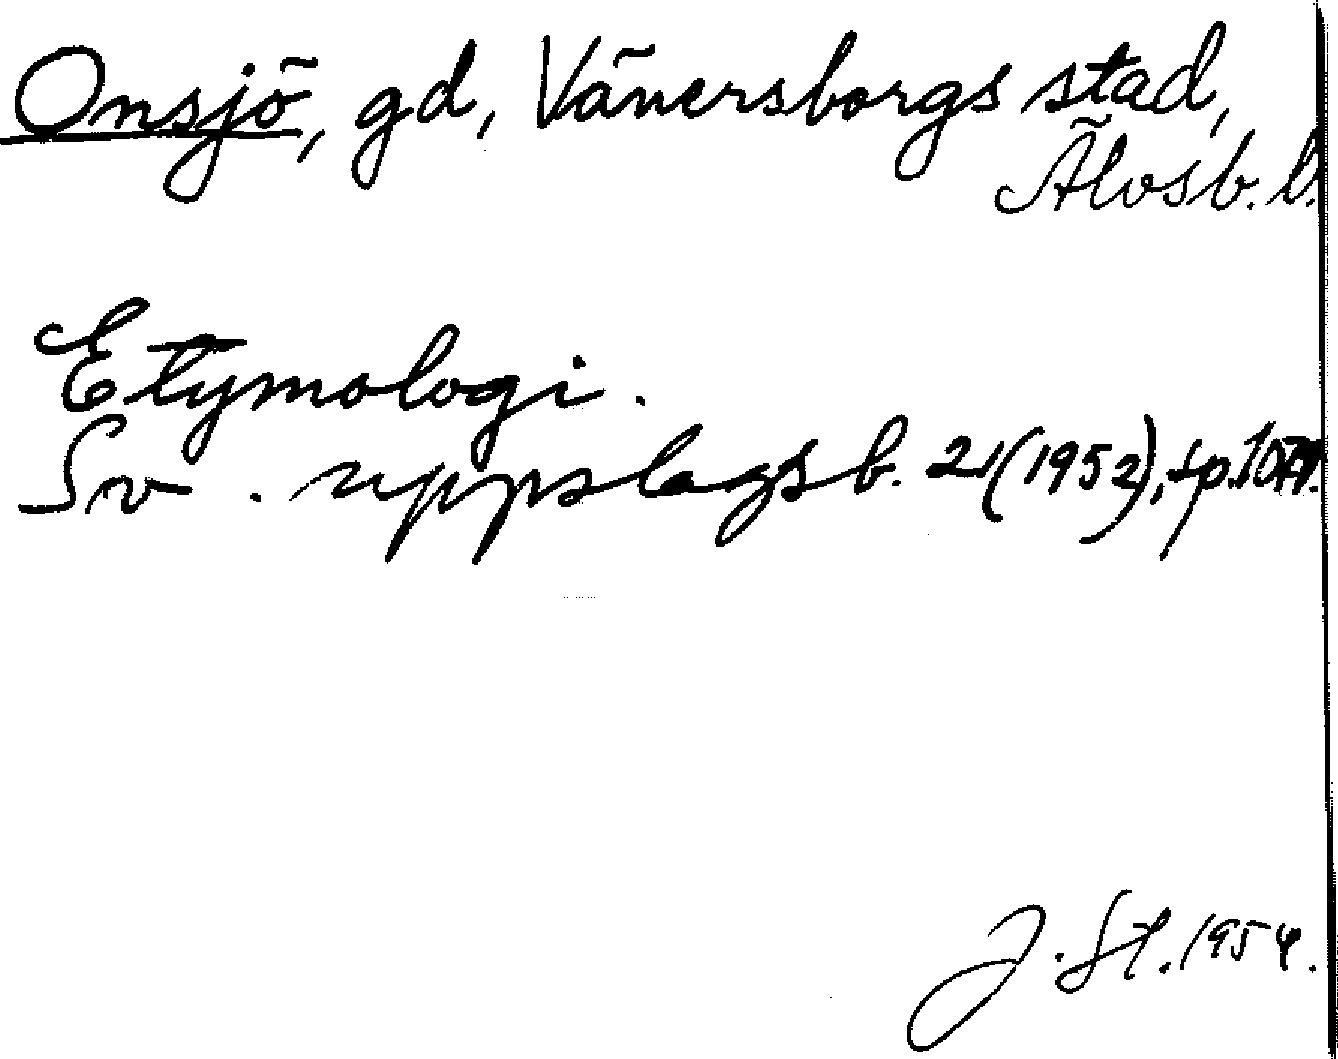 Onsjö, gd, Vänersborgs stad,
Älvsb. l.
Etymologi.
Sv. uppslagsb. 21 (1952), sp.
J. St. 1954.